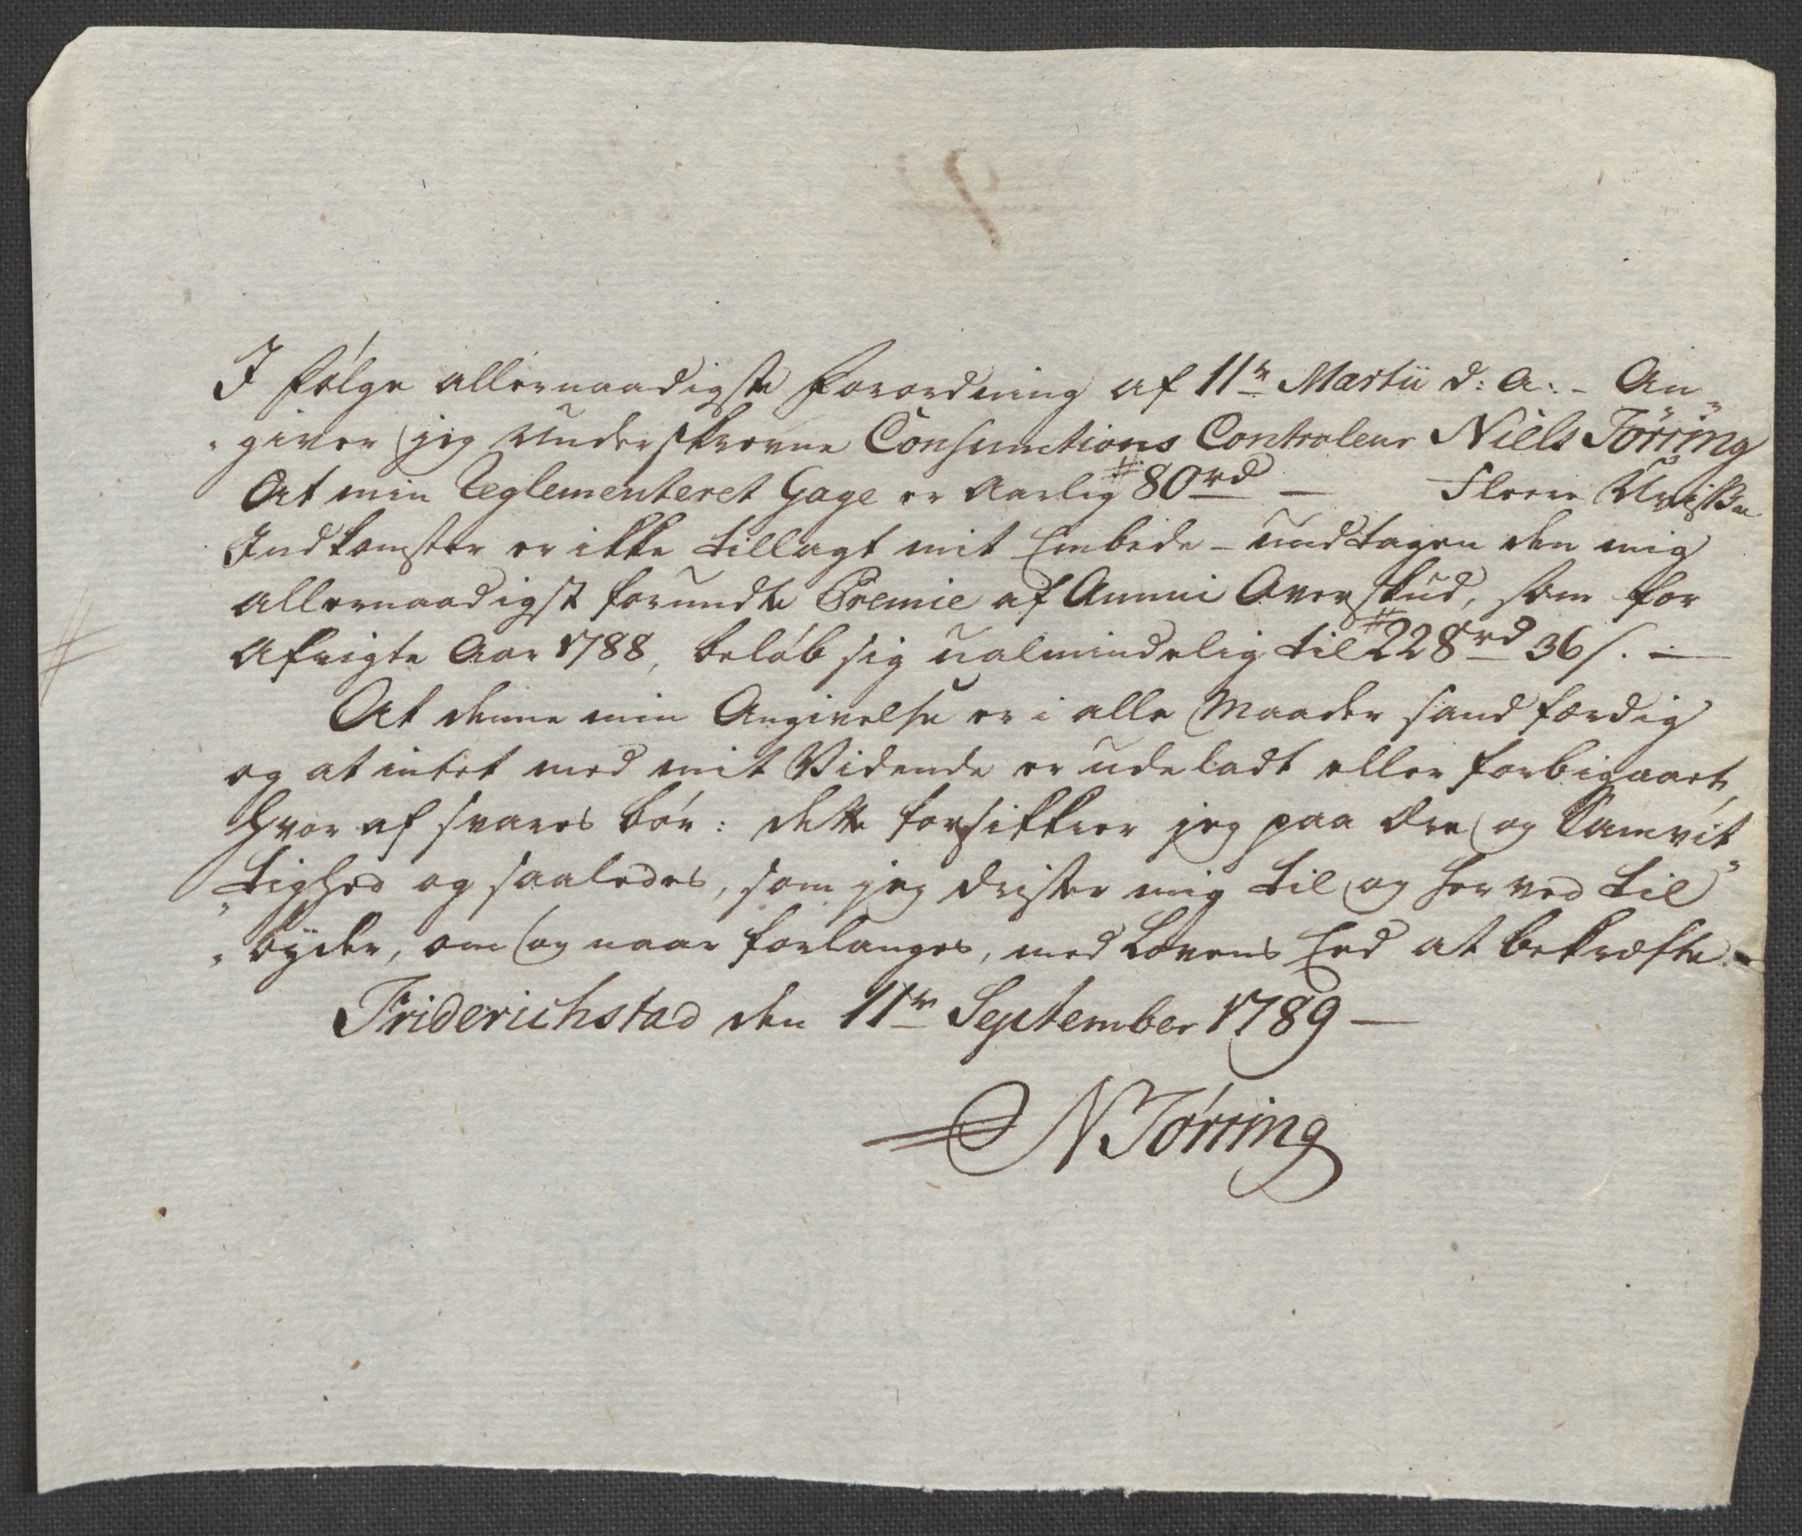 I følge allernaadigste Forordning af 11te Martii d: A: - An„
„giver jeg Underskrevne Consumtions Controleur Niels Törring
At min Reglementeret Gage er Aarlig # 80 rd — Fleere Uvisse
Indkomster er ikke tillagt mit Embede - undtagen den mig
allernaadigst forundte Premie af Annui Overskud, som for
Afvigte Aar 1788, beløb sig ualmindelig til # 228 rd 36 s. —
At denne min Angivelse er i alle Maader sandfærdig
og at intet med mit Vidende er udeladt eller forbigaaet,
hvor af svares bør: dette forsikkrer jeg paa Ære og Samvit„
„tighed og saaledes, som jeg drister mig til og herved til„
„byder, om og naar forlanges, med Lovens Eed at bekræfte.
Friderichstad den 11te September 1789 —
N Törring